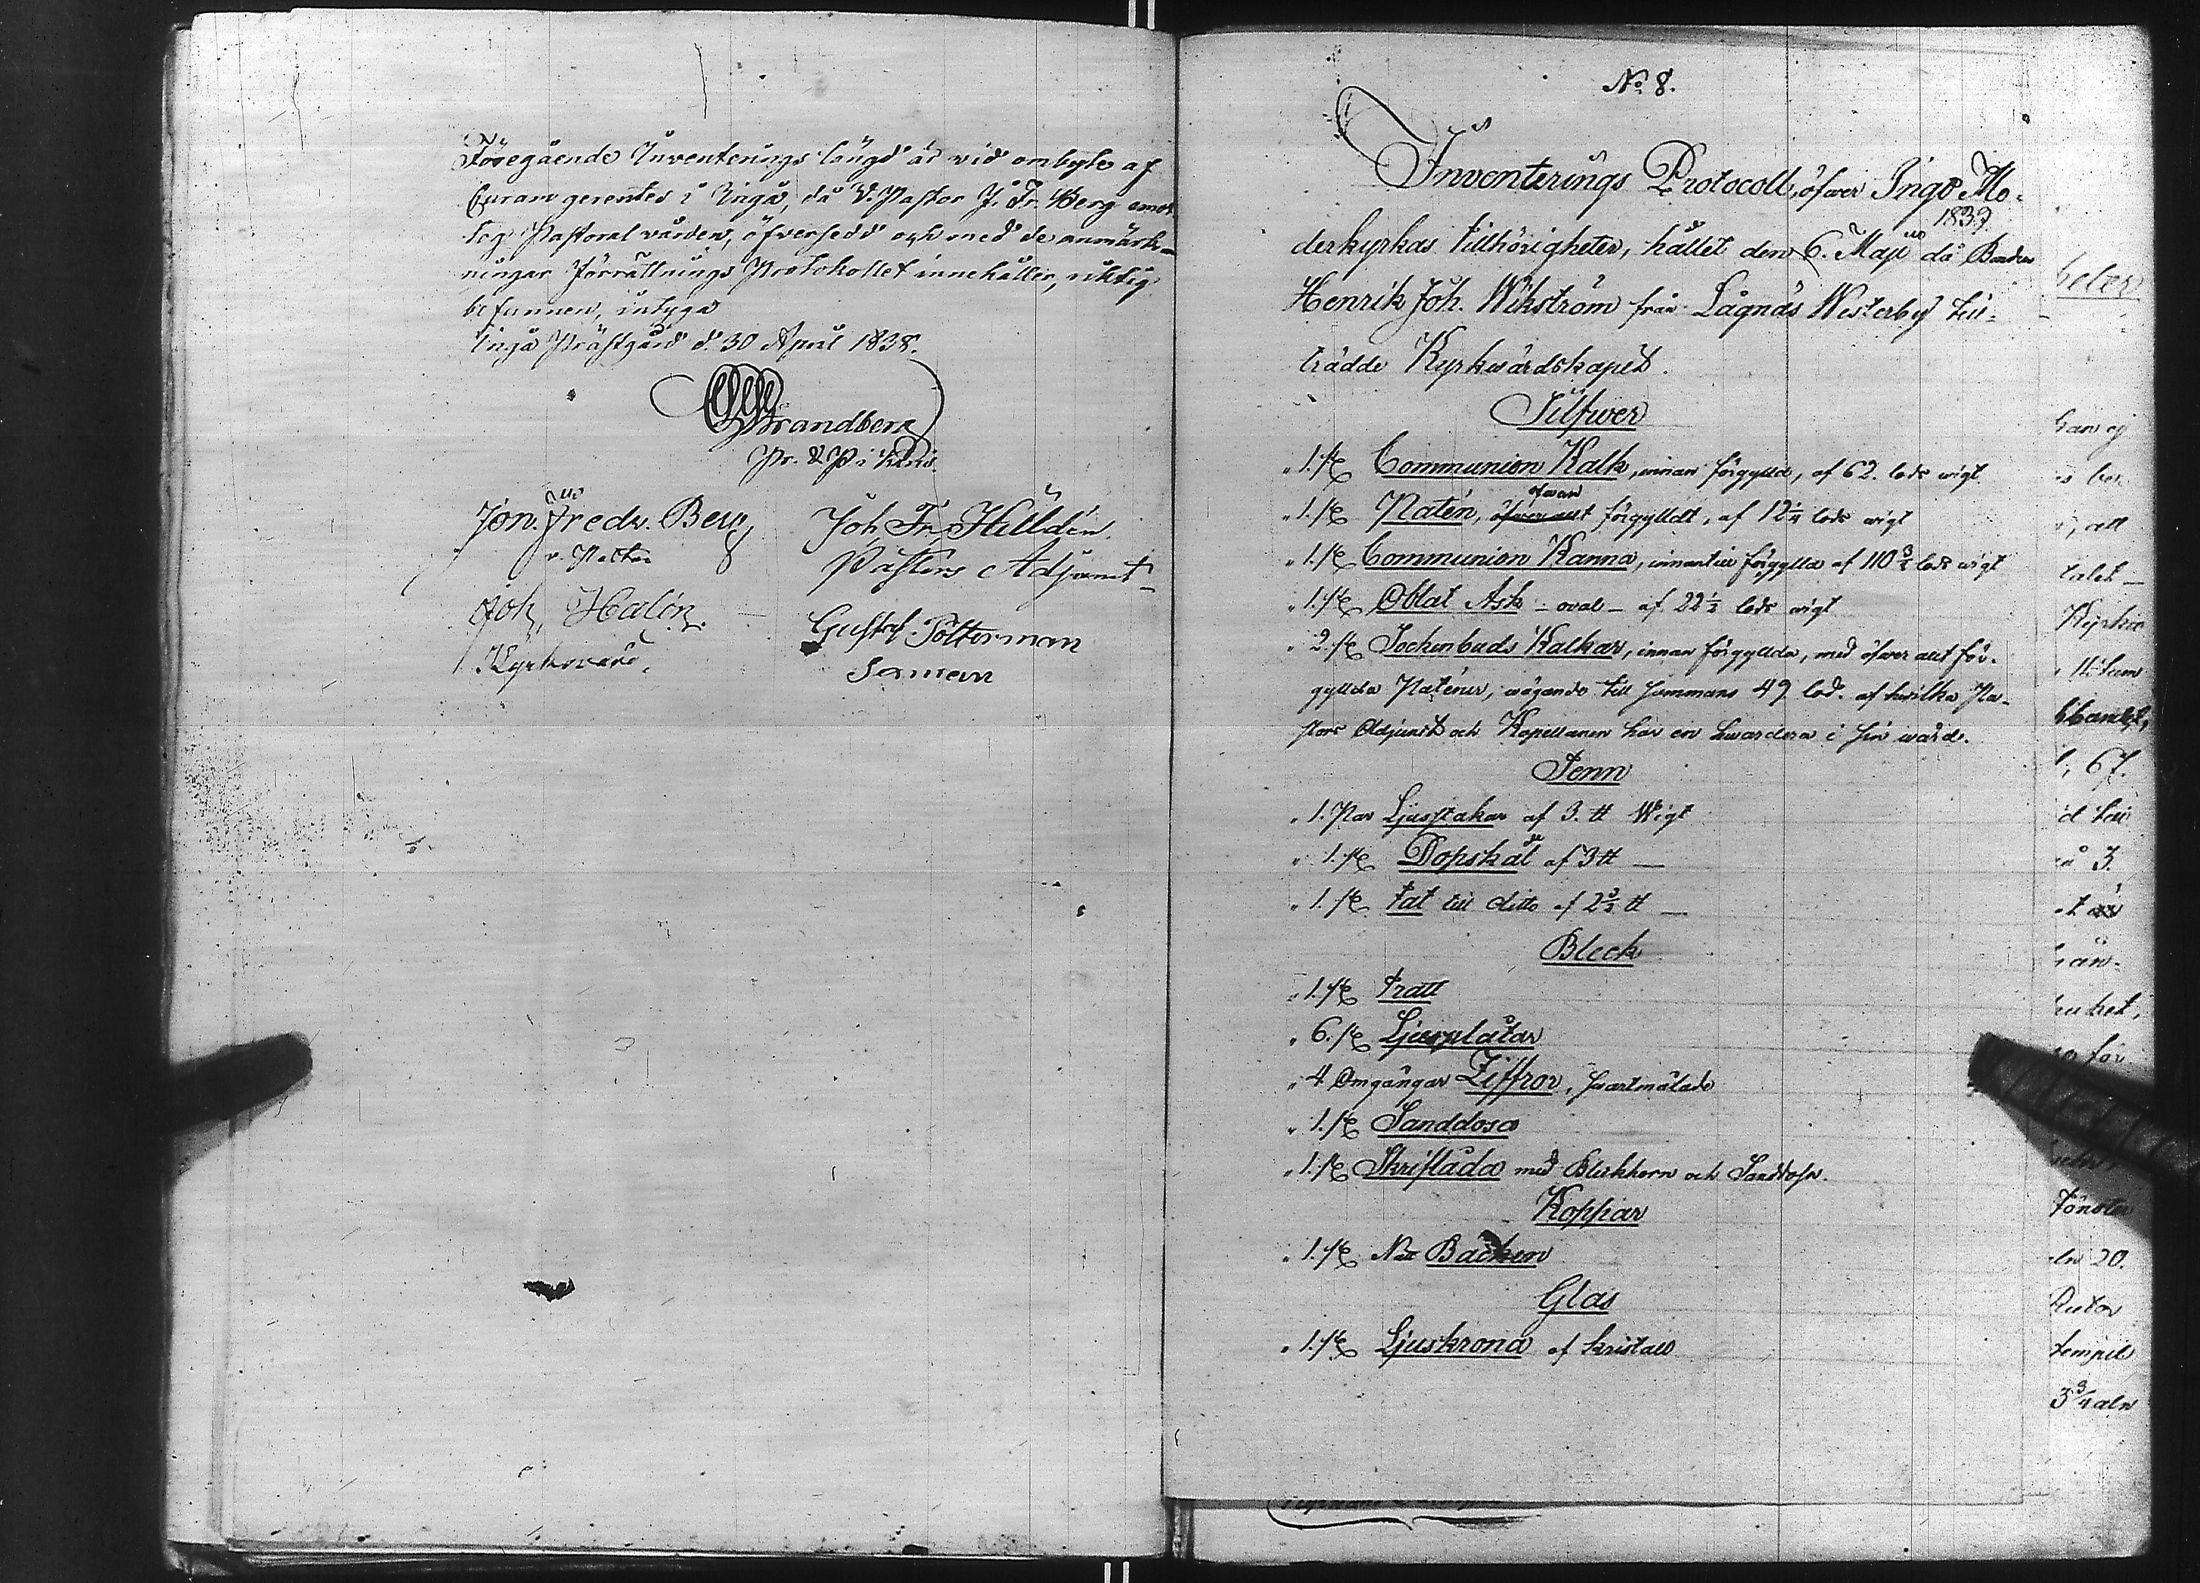 Föregående Inventerings längd är vid ombyte af
Curam gerentes i Ingå, då V. Pastor J. Fr. Berg emot
tog Pastoral vården, öfversedd och med de anmärk-
ningar Förrättnings Protokollet innehåller, riktig
befunnen, intyga
Ingå Prästgård d. 30 April 1838.
Strandberg
Pr. & P i
Jon. Fredr. Berg
v. Pastor
Joh. Fr. Helldén
Pastors Adjunct
Joh. Halin
Kyrkovärd.
Gustaf Polterman
Sexman
No 8.
Inventerings Protocoll, öfwer Ingo Mo-
derkyrkas tillhörigheter, hållet den 6. Maji 1839 då Bonden
Henrik Joh. Wikström från Lågnäs Westerby till-
trädde Kyrkwärdskapet.
Silfwer
" 1. st Communion Kalk, innan förgylld, af 62. lods wigt
" 1. st Patén, öfwer allt ofwan förgylldt, af 12 1/4 lods wigt
" 1. st Communion Kanna, innantill förgylld af 110 3/4 lods wigt
" 1. st Oblat Ask - oval - af 22 1/2 lods wigt
" 2. st Sockenbuds Kalkar, innan förgyllda, med öfwer allt för-
gyllda Paténer, wägande till sammans 49 lod. af hwilka Pa-
stors Adjunct och Kapellanen har en hwardera i sin wård.
Tenn
" 1. Par Ljusstakar af 3. ℔ Wigt
" 1. st Dopskål af 3 ℔ —
" 1. st Fat till ditto af 2 3/4 ℔ —
Bleck
" 1. st Tratt
" 6. st Ljusplåtar
" 4 Omgångar Ziffror, swartmålade
" 1. st Sanddosa
" 1. st Skriflåda med Bläkhorn och Sanddosa.
Koppar
" 1. st Backen
Glas
" 1. st Ljuskrona af kristall
beler
talet —
Kyrko
67.
3.
Fönster
aln 20.
Rutor
tempel
3 3/4 aln